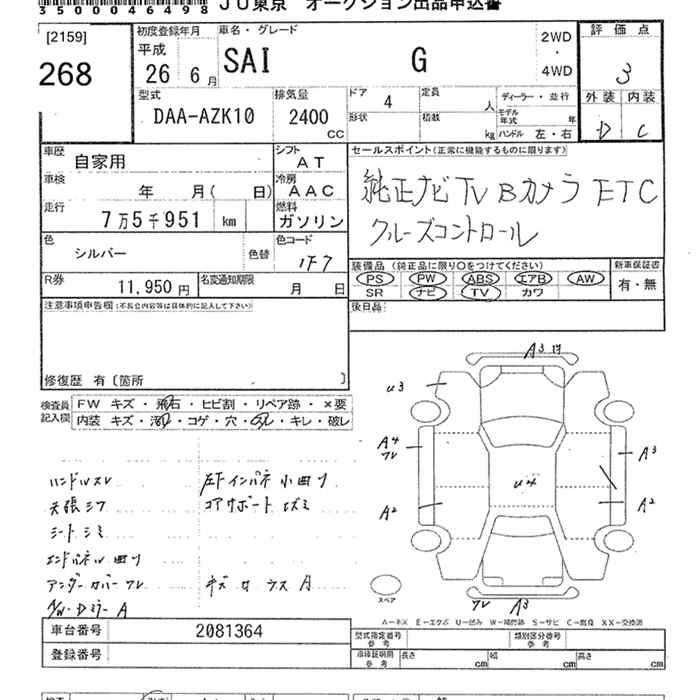 35000046498 JU東京 オークション出品申込書
[2159]
268
初度登録年月
平成
26 6月
車名・グレード
SAI G
2WD
・
4WD
評価点
3
外装 内装
D C
型式
DAA-AZK10
排気量
2400
CC
ドア 4
形状
定員 人
積載 kg
ディーラー・並行
モデル年式 年
ハンドル 左・右
車歴
自家用
車検
年 月( 日)
走行
7万5千951 km
シフト
AT
冷房
AAC
燃料
ガソリン
色
シルバー
色替
色コード
1F7
R券
11,950円
名変通知期限
月 日
セールスポイント(正常に機能するものに限ります)
純正ナビ TV Bカメラ ETC
クルーズコントロール
装備品 (純正品に限り○をつけてください)
PS PW ABS エアB AW
SR ナビ TV カワ
新車保証書
有・無
後日品
注意事項申告欄(不具合内容等は具体的に記入して下さい)
修復歴 有〔箇所 〕
検査員記入欄
FW キズ・飛石・ヒビ割・リペア跡・×要
内装 キズ・汚れ・コゲ・穴・スレ・キレ・破レ
ハンドルスレ
天張シワ
シートシミ
エンドパネル曲り
アンダーカバーワレ
左下インパネ小曲り
コアサポートエズミ
キズ ガラス A
A3
u3
A4
ワレ
A2
u4
A3
A2
スペア
ワレ A3
A-キズ E-エクボ U-凹み W-補修跡 S-サビ C-腐食 XX-交換済
車台番号 2081364
登録番号
型式指定番号
参考
類別区分番号
参考
車庫証明用
参考
長さ cm
幅 cm
高さ cm